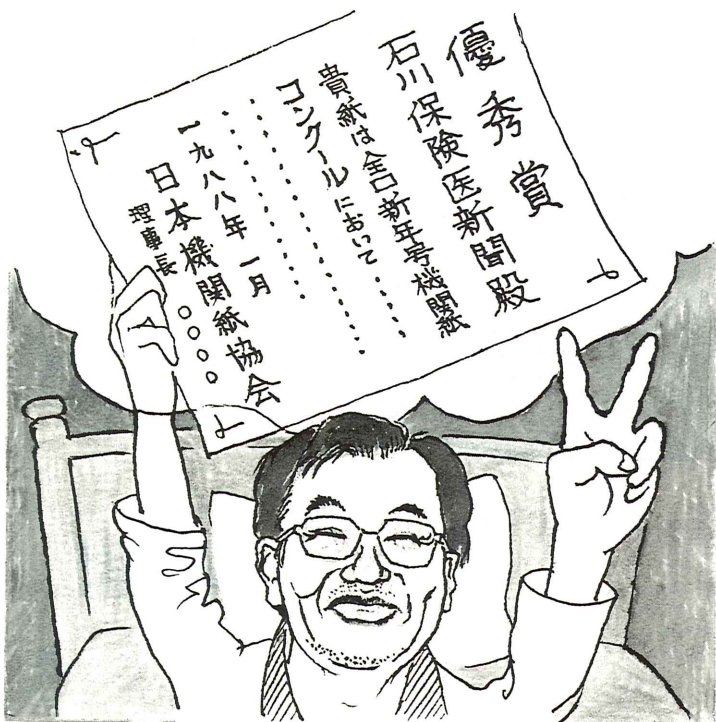 優秀賞
石川保険医新聞殿
貴紙は全口新年号機関紙
コンクールにおいて・・・・・
・・・・・・・・・・・・・・
・・・・・・・・・・・
一九八八年 一月
日本機関紙協会
理事長 〇〇〇〇